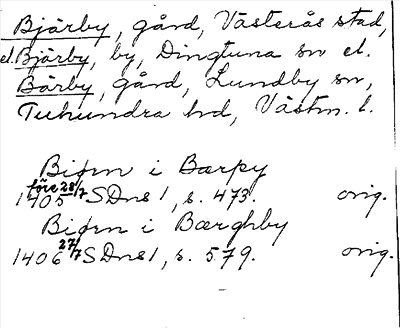 Bjärby, gård, Västerås stad,
el. Bjärby, by, Dingtuna sn el.
Bärby, gård, Lundby sn,
Tuhundra hd, Västm. l.
Biørn i Bærpy
före 28/7 1405 SDns 1, s. 473. orig.
Biørn i Bærghby
1406 27/7 SDns 1, s. 579. orig.